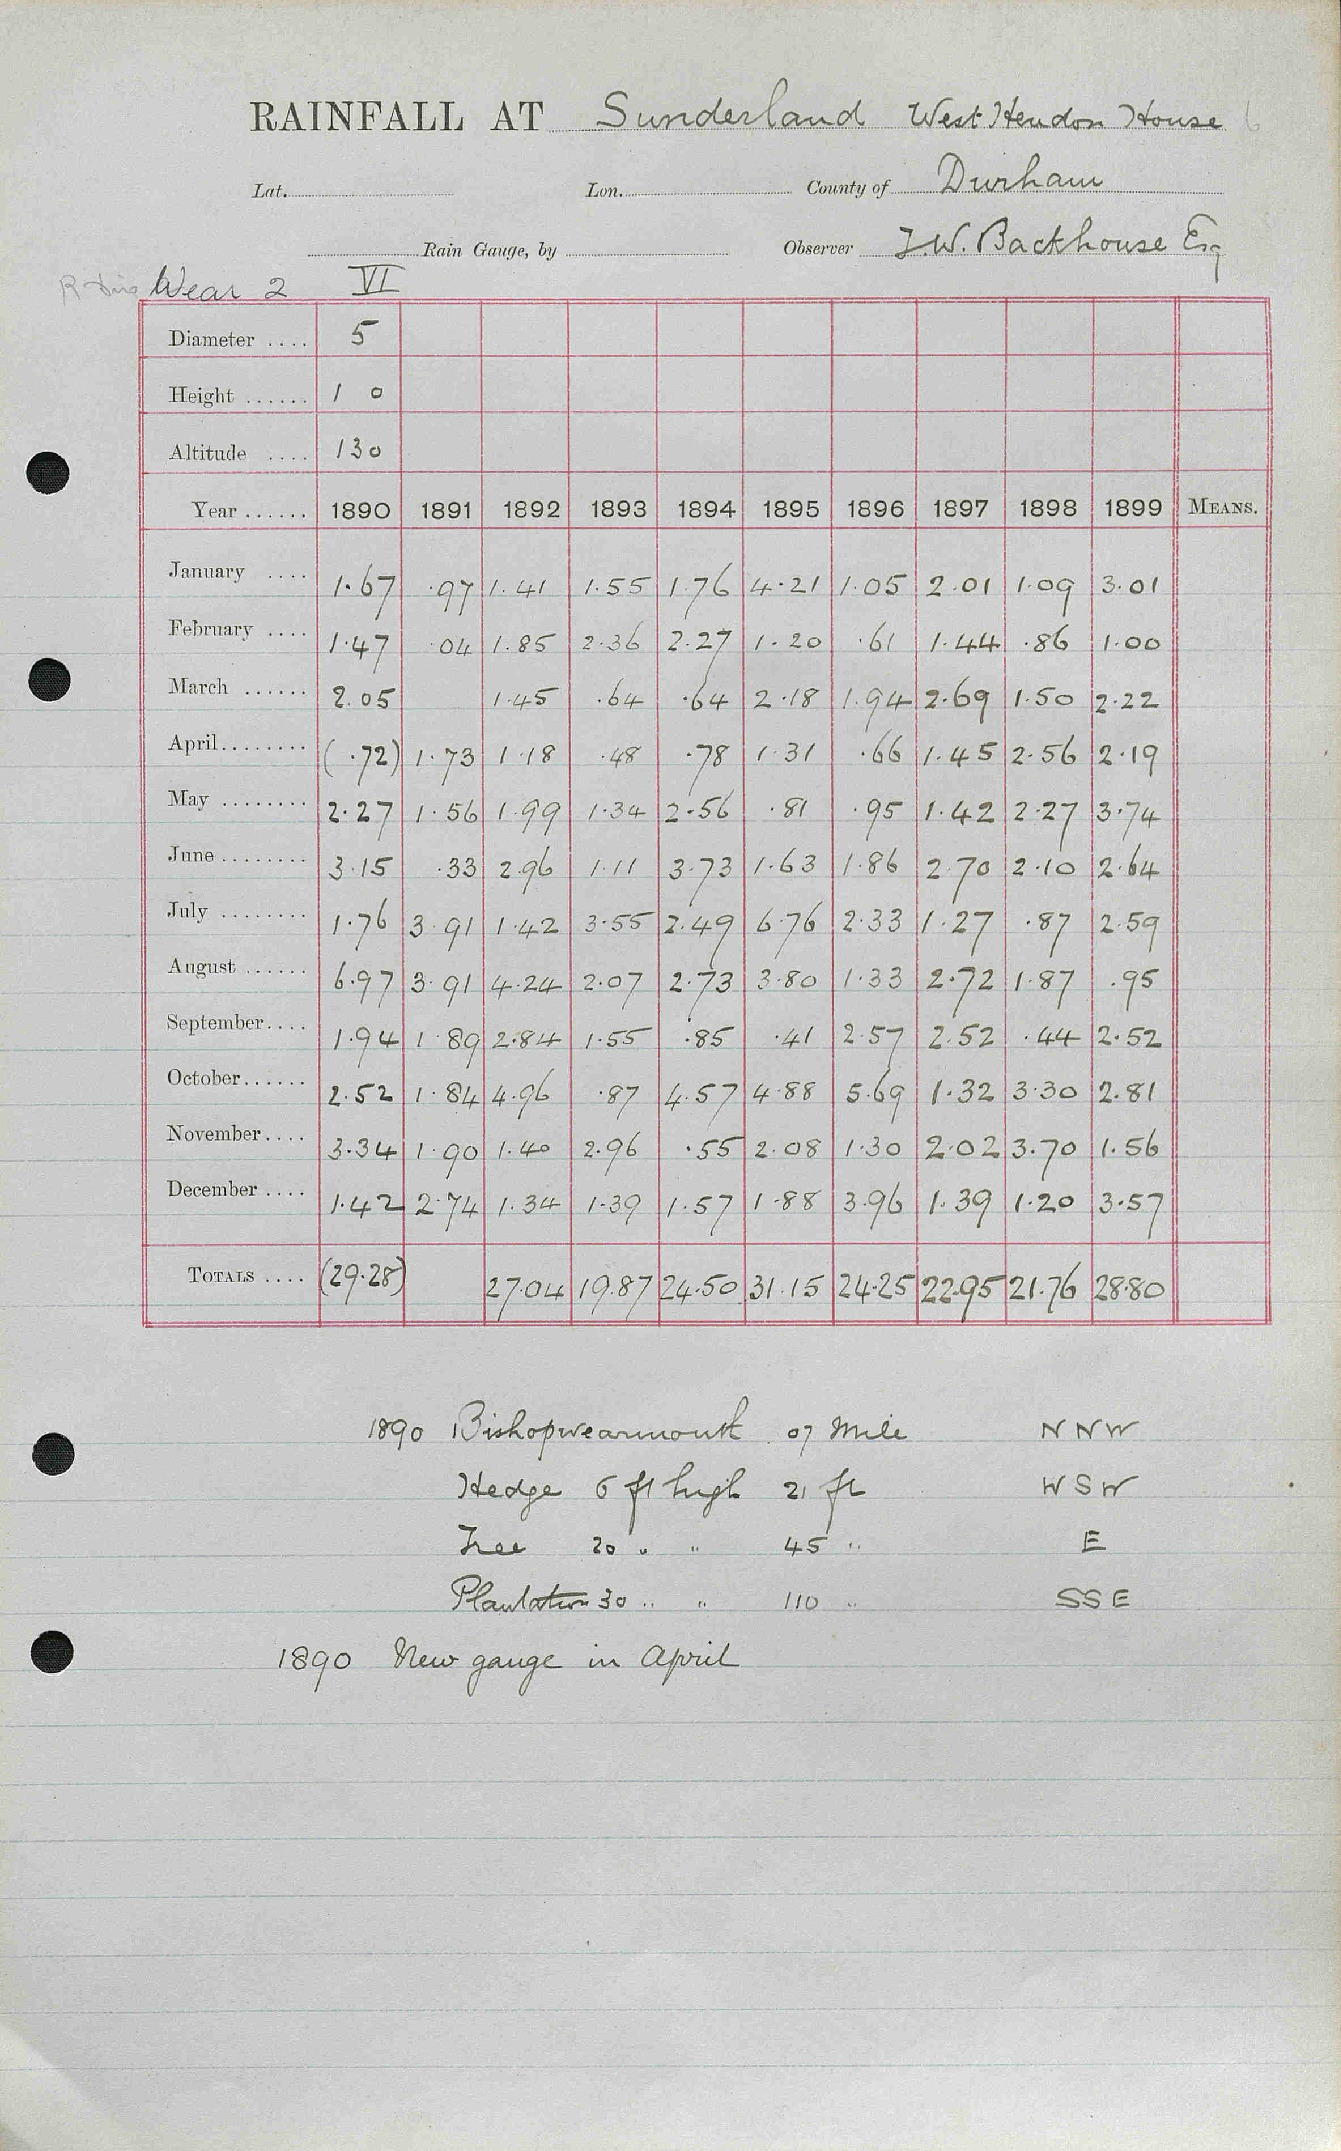 RAINFALL AT Sunderland West Hendon House
Lat. Lon. County of Durham
Rain Gauge, by Observer T.W. Backhouse Esq
Wear 2 VI
Diameter .... 5
Height ...... 1 0
Altitude .... 130
Year ...... 1890 1891 1892 1893 1894 1895 1896 1897 1898 1899 MEANS.
January .... 1.67 .97 1.41 1.55 1.76 4.21 1.05 2.01 1.09 3.01
February .... 1.47 .04 1.85 2.36 2.27 1.20 .61 1.44 .86 1.00
March ...... 2.05 1.45 .64 .64 2.18 1.94 2.69 1.50 2.22
April........ (.72) 1.73 1.18 .48 .78 1.31 .66 1.45 2.56 2.19
May ........ 2.27 1.56 1.99 1.34 2.56 .81 .95 1.42 2.27 3.74
June ........ 3.15 .33 2.96 1.11 3.73 1.63 1.86 2.70 2.10 2.64
July ........ 1.76 3.91 1.42 3.55 2.49 6.76 2.33 1.27 .87 2.59
August ...... 6.97 3.91 4.24 2.07 2.73 3.80 1.33 2.72 1.87 .95
September.... 1.94 1.89 2.84 1.55 .85 .41 2.57 2.52 .44 2.52
October...... 2.52 1.84 4.96 .87 4.57 4.88 5.69 1.32 3.30 2.81
November.... 3.34 1.90 1.40 2.96 .55 2.08 1.30 2.02 3.70 1.56
December .... 1.42 2.74 1.34 1.39 1.57 1.88 3.96 1.39 1.20 3.57
TOTALS .... (29.28) 27.04 19.87 24.50 31.15 24.25 22.95 21.76 28.80
1890 Bishopwearmouth 07 Mile N N W
Hedge 6 ft high 21 ft W S W
Tree 20 " " 45 " E
Plantation 30 " " 110 " SSE
1890 New gauge in April